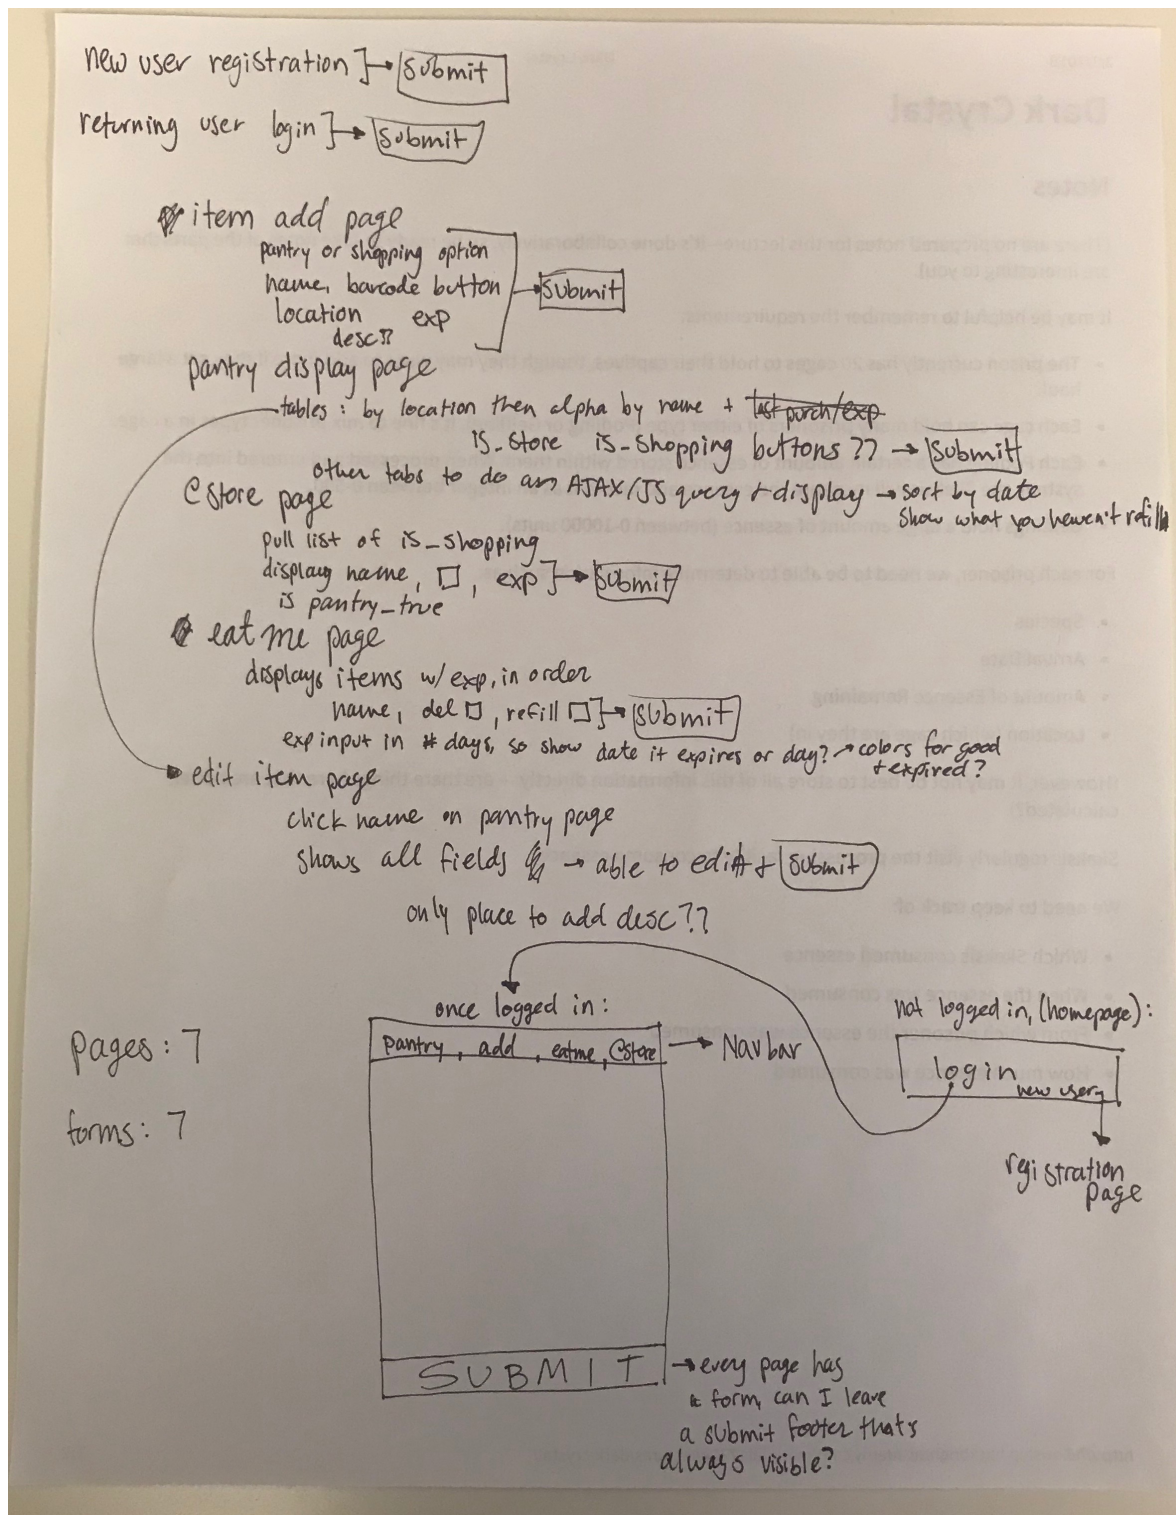 new user registration] → Submit
returning user login] → Submit
item add page
pantry or shopping option
name, barcode button
Submit
location exp
desc??
pantry display page
tables: by location then alpha by name + last purch/exp
is_store is_shopping buttons ?? → Submit
other tabs to do an AJAX/JS query + display → sort by date
show what you haven't refill
@store page
pull list of is_shopping
display name, □, exp] → Submit
is pantry_true
eat me page
displays items w/ exp, in order
name, del □, refill □] → Submit
exp input in # days, so show date it expires or day? → colors for good
+ expired?
edit item page
click name on pantry page
shows all fields → able to edit + Submit
only place to add desc??
once logged in:
not logged in, (homepage):
pages: 7
pantry, add, eatme, @store → Navbar
login
new user
forms: 7
registration
page
SUBMIT → every page has
form, can I leave
a submit footer that's
always visible?
Dark Crystal
Notes